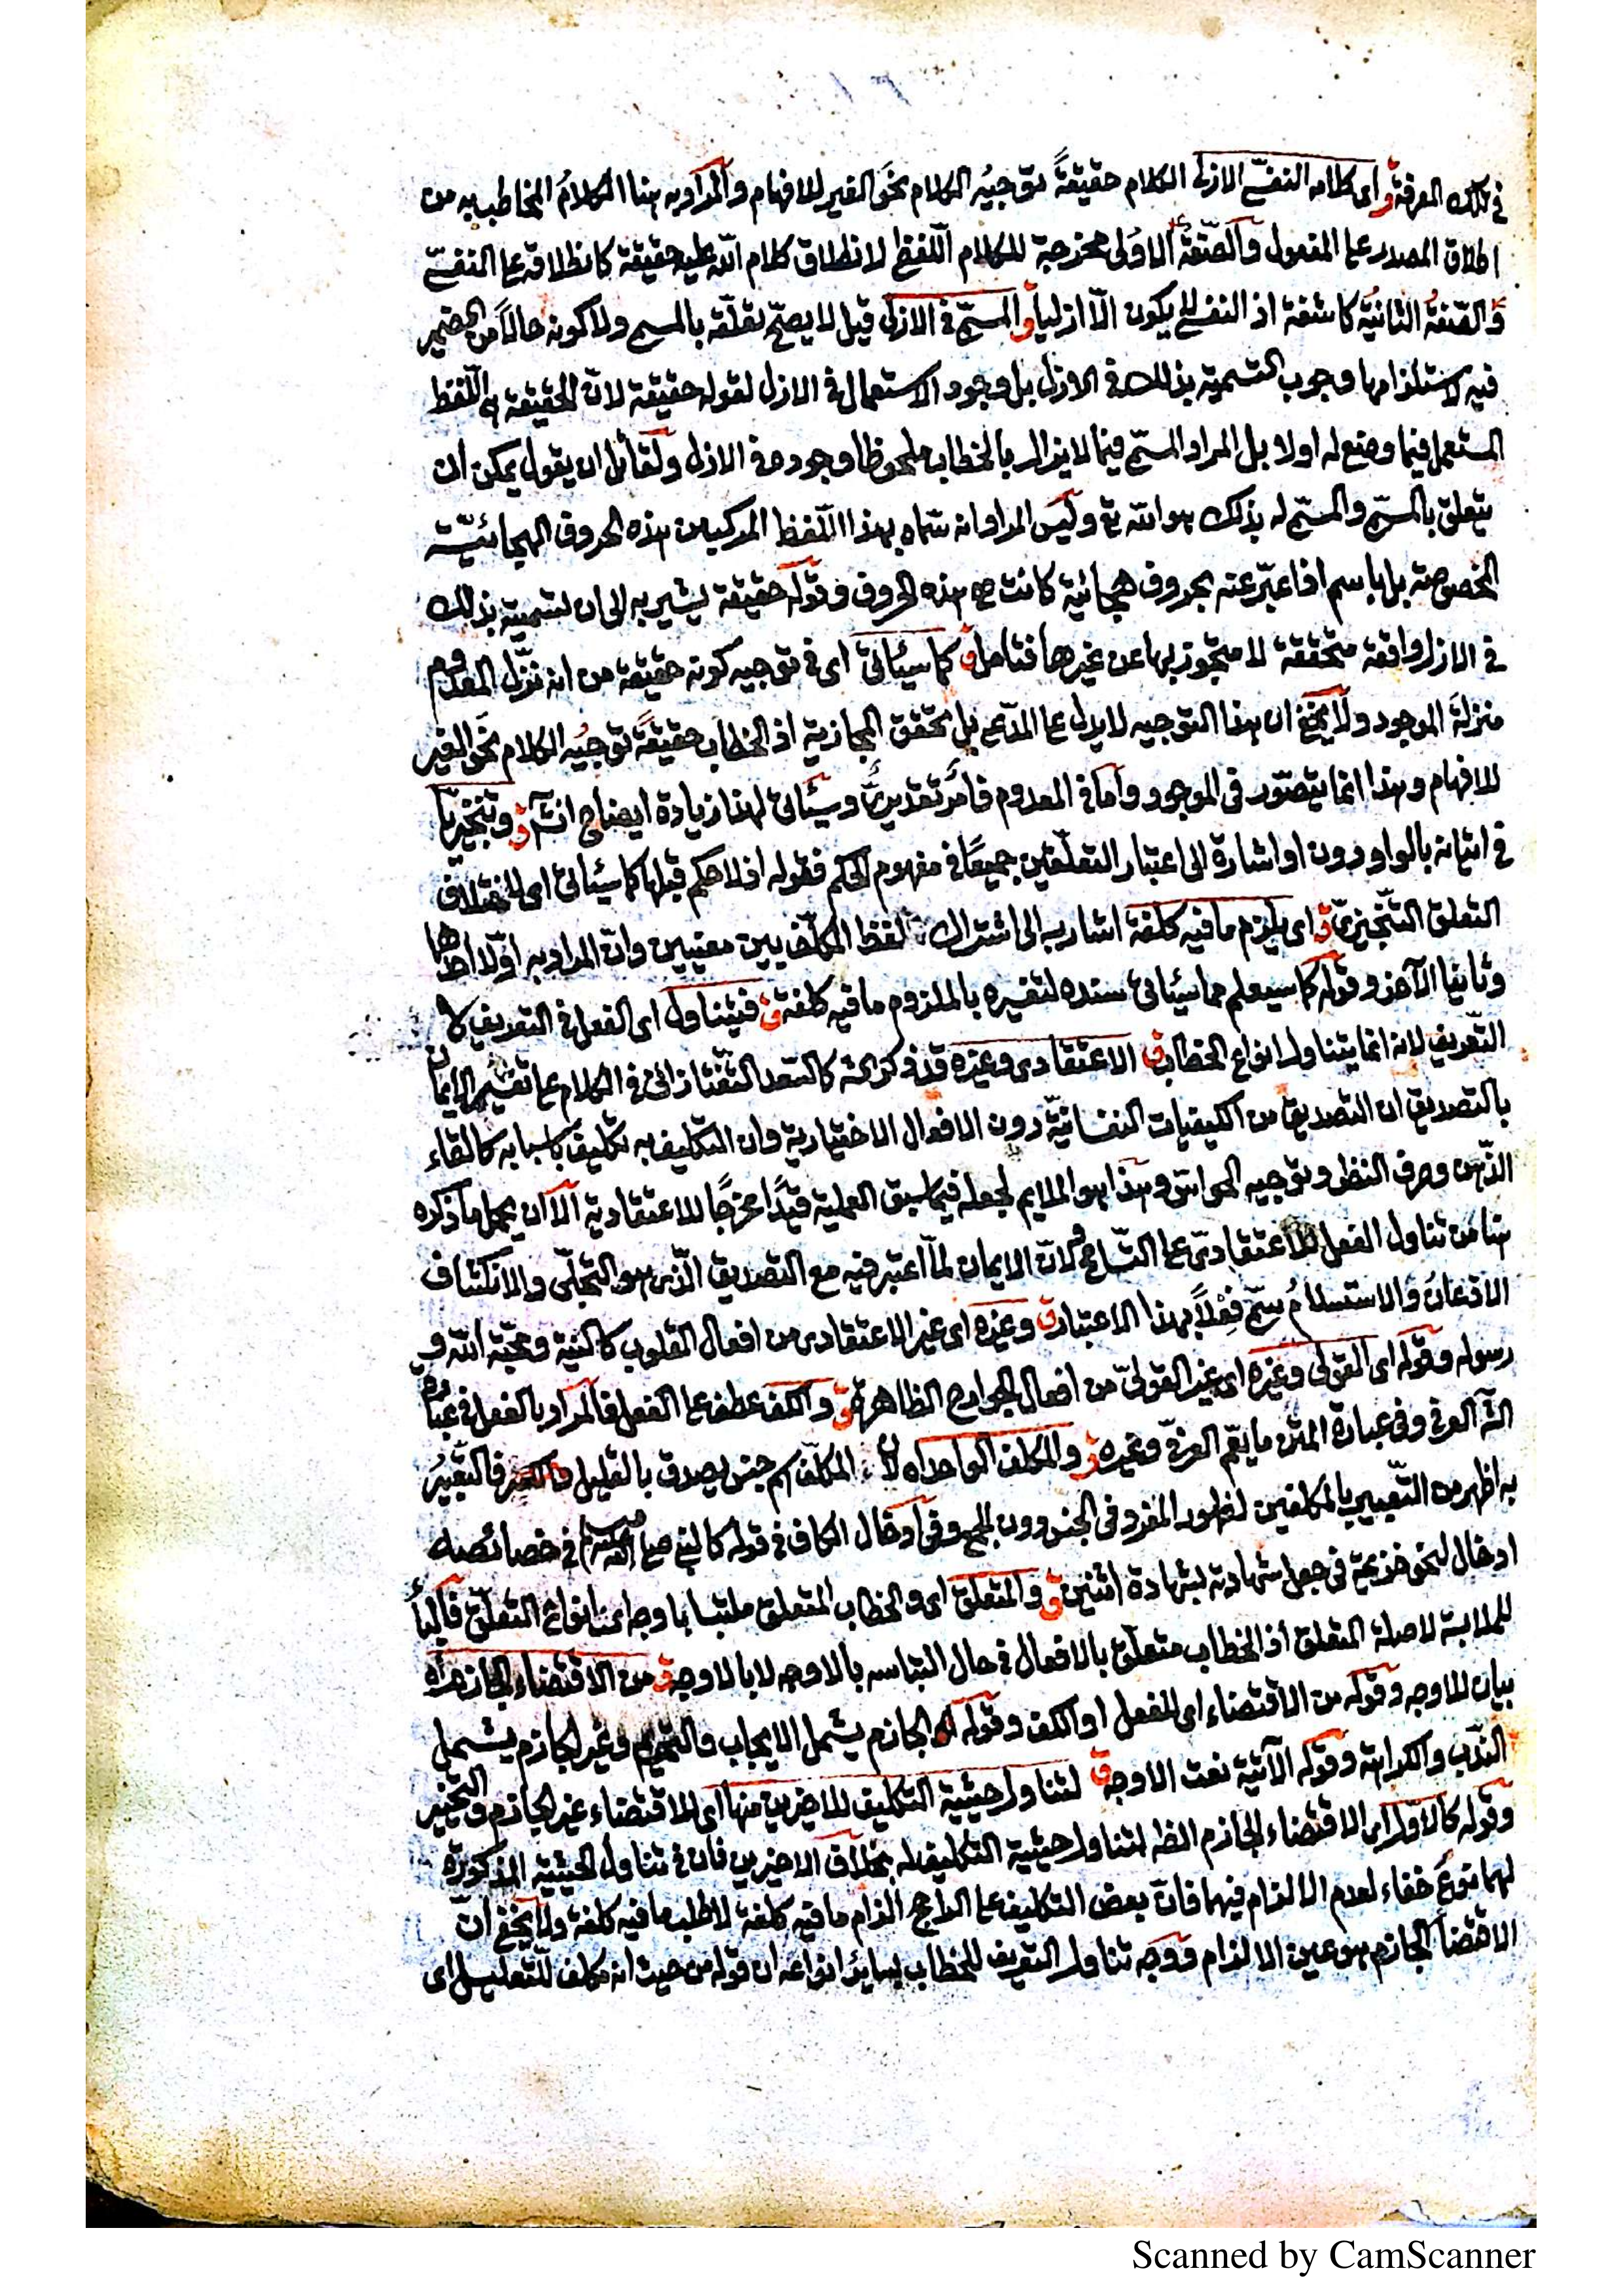 في تلك المعرفة ق أى كلامه النفسى الازلى الكلام حقيقةً توجيُه الكلام نحوَ الغير للافهام والمراد به هنا الكلامُ المخاطب به من
اطلاق المصدر على المفعول والصّفةُ الاولى مخرجة للكلام اللّفظى لانطلاق كلام الله عليه حقيقة كانطلاقه على النفسىّ
والصّفةُ الثانيةُ كاشفة اذ النفسى لا يكون الّا ازليا ق المسمّى فى الازل قيل لا يصحّ تعلّقه بالمسمى ولا كونه حالاً من الضمير
فيه لاستلزامها وجوب التسمية بذلك فى الازل بل وجود الاستعمال فى الازل لقوله حقيقة لانّ الحقيقة هى اللّفظ
المستعمل فيما وضع له اولا بل المراد المسمّى فيما لا يزال بالخطاب ملحوظا وجوده فى الازل ولقائل ان يقول يمكن ان
يتعلق بالمسمّى والمسمّى له بذلك هو الله تع وليس المراد انه سمّاه بهذا اللّفظ المركب من هذه الحروف الهجائيّة
المخصوصة بل باسم اذا عبّر عنه بحروف هجائية كانت هى هذه الحروف وقوله حقيقة يشير به الى ان تسميته بذلك
فى الازل واقعة متحققة لا متجوز بها عن غيرها فتامل ق كما سيئاتى اى فى توجيه كونه حقيقة من انه نزّل المعدوم
منزلة الموجود ولا يخفى ان هذا التوجيه لا يدل على المدّعى بل يحقق المجازية اذ الخطاب حقيقةً توجيُه الكلام نحوَ الغير
للافهام وهذا انما يتصّور فى الموجود وأما فى المعدوم فأمرٌ تقديرىٌّ وسيئاتى لهذا زيادة ايضاح انش ق وتنجيزيّا
فى اتيانه بالواو دون او اشارة الى اعتبار التعلّقين جميعًا فى مفهوم الحكم فقوله اذ لا حكم قبلها كما سيئاتى اى لاختلاف
التعلق التنجيزىّ ق اى يلزم ما فيه كلفة اشار به الى اشتراك لفظ المكلّف بين معنيين وانّ المراد به اوّلا احدهما
وثانيا الآخر وقوله كما سيعلم مما سيئاتى سنده لتفسيره بالملزوم ما فيه كلفة ق فيتناول اى الفعل فى التعريف لا
التعريف لانه انما يتناول انواع الخطاب ق الاعتقادى وغيره قد ذكر عنه كالسعد التّفتازانى فى الكلام على تفسير الايمان
بالتصديق ان التصديق من الكيفيات النفسانيّة دون الافعال الاختيارية وان التكليف به تكليف باسبابه كالقاء
الذّهن وصرف النظر وتوجيه الحواسّ وهذا هو الملايم لجعله فيما سبق العملية قيدًا مخرجًا للاعتقادية الّا ان يحمل ما ذكره
هنا من تناول الفعل للاعتقادىّ على التّسامح لانّ الايمان لمّا اعتبر فيه مع التصديق الذّى هو التجلّى والانكشاف
الاذعانُ والاستسلامُ سمّى فِعْلاً بهذا الاعتبار ق وغيره اى غير الاعتقادى من افعال القلوب كالنية ومحبّة الله و
رسوله وقوله اى القولى وغيره اى غير القولىّ من افعال الجوارح الظاهرة ق والكف عطف على الفعل فالمراد بالفعل فى عبارة
الشّ العرفى وفى عبارة المتن ما يعّم العرفىّ وغيره ق والمكلف الواحد اه لانّ المكلّف اسم جنس يصدق بالقليل والكثير فالتعبيرُ
به اظهر من التّعبير بالمكلفين لظهور المفرد فى الجنس دون الجمع وفى ادخال الكاف فى قوله كالنبى صلى الله عليه وسلم فى خصائصه
ادخال لنحو خزيمة فى جعل شهادته بشهادة اثنين ق والمتعلق اى والخطاب المتعلق ملتبسا باوجه اى بانواع التعلّق فالباءُ
للملابسة لا صلة المتعلق اذ الخطاب متعلّق بالافعال فى حال التباسه بالاوجه لا بالاوجه ق من الاقتضاء الجازم اه
بيان للاوجه وقوله من الاقتضاء اى للفعل او الكف وقوله الجازم يشمل الايجاب والتحريم وغير الجازم يشمل
النّدب والكراهة وقوله الآتية نعت الاوجه ق لتناول حيثية التكليف للاخيرين منها اى الاقتضاء غير الجازم والتخيير
وقوله كالاوّل اى الاقتضاء الجازم الظ لتناول حيثية التكليف له بخلاف الاخيرين فان فى تناول الحيثية المذكورة
لهما نوعَ خفاء لعدم الالزام فيهما فانّ بعض التكليف على الراجح الزام ما فيه كلفة لا طلب ما فيه كلفة ولا يخفى انّ
الاقتضاء الجازم هو عين الالزام ووجه تناول التعريف للخطاب بسائر انواعه ان قوله من حيث انه مكلف للتّعليل اى
Scanned by CamScanner